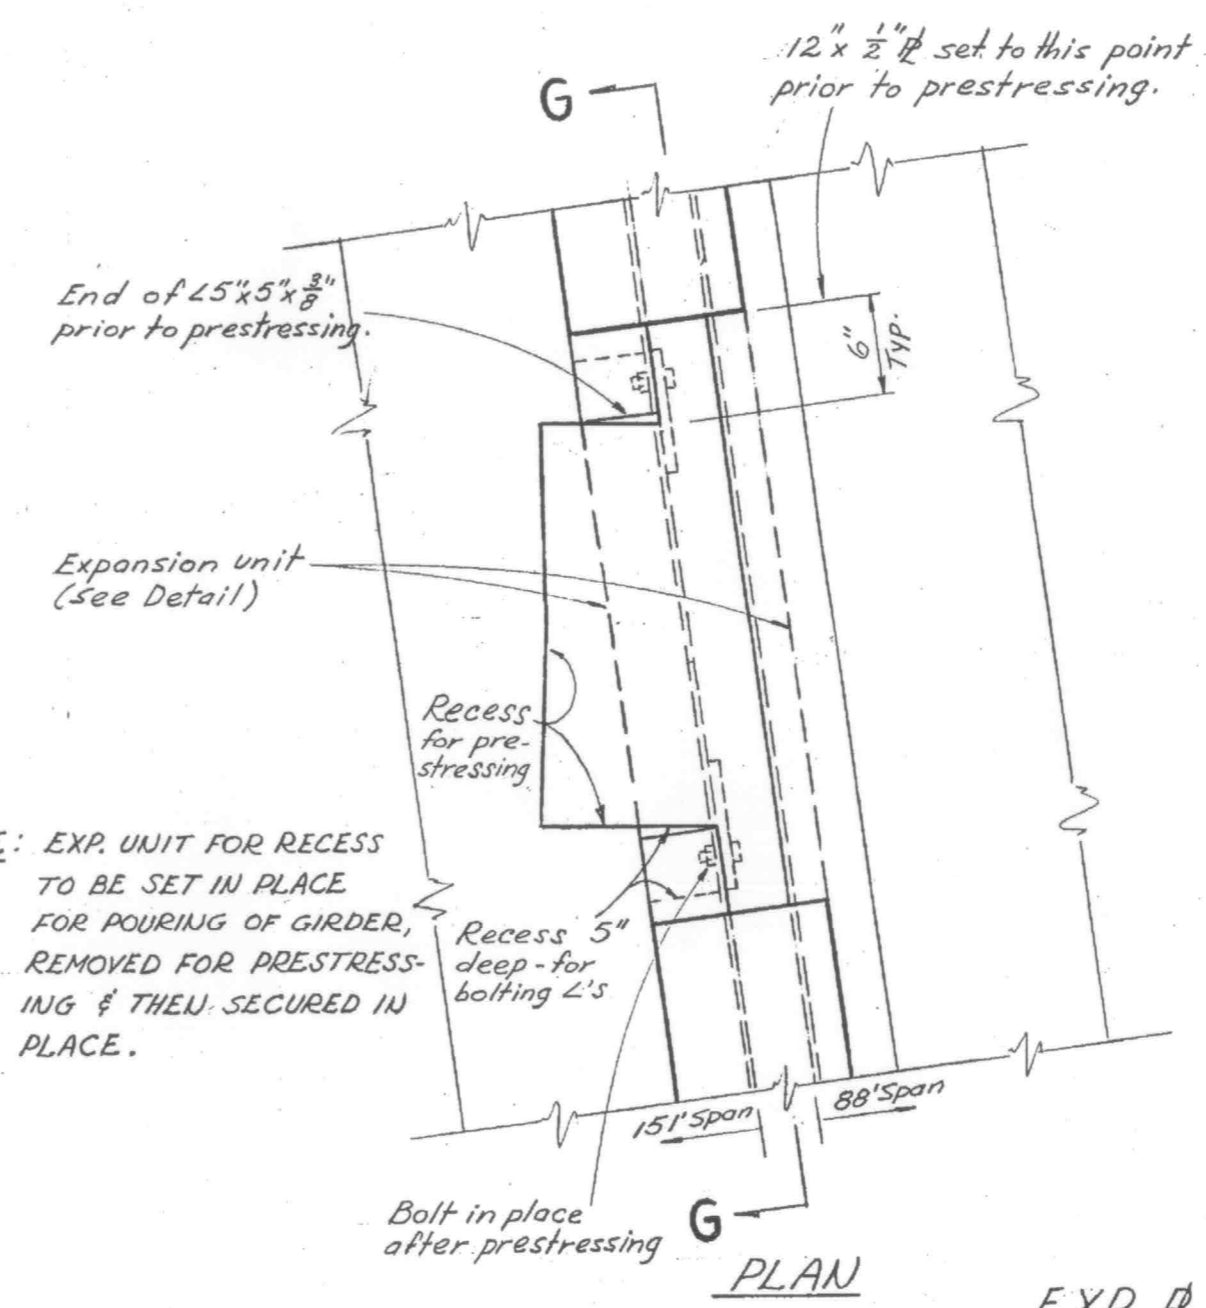 12" x 1/2" ⅊ set to this point
prior to prestressing.
G
End of ∠5"x5"x3/8"
prior to prestressing.
6"
TYP.
Expansion unit
(see Detail)
Recess
for pre-
stressing
E: EXP. UNIT FOR RECESS
TO BE SET IN PLACE
FOR POURING OF GIRDER,
REMOVED FOR PRESTRESS-
ING & THEN SECURED IN
PLACE.
Recess 5"
deep - for
bolting ∠'s
151' Span
88' Span
Bolt in place
after prestressing
G
PLAN
EXP. ⅊